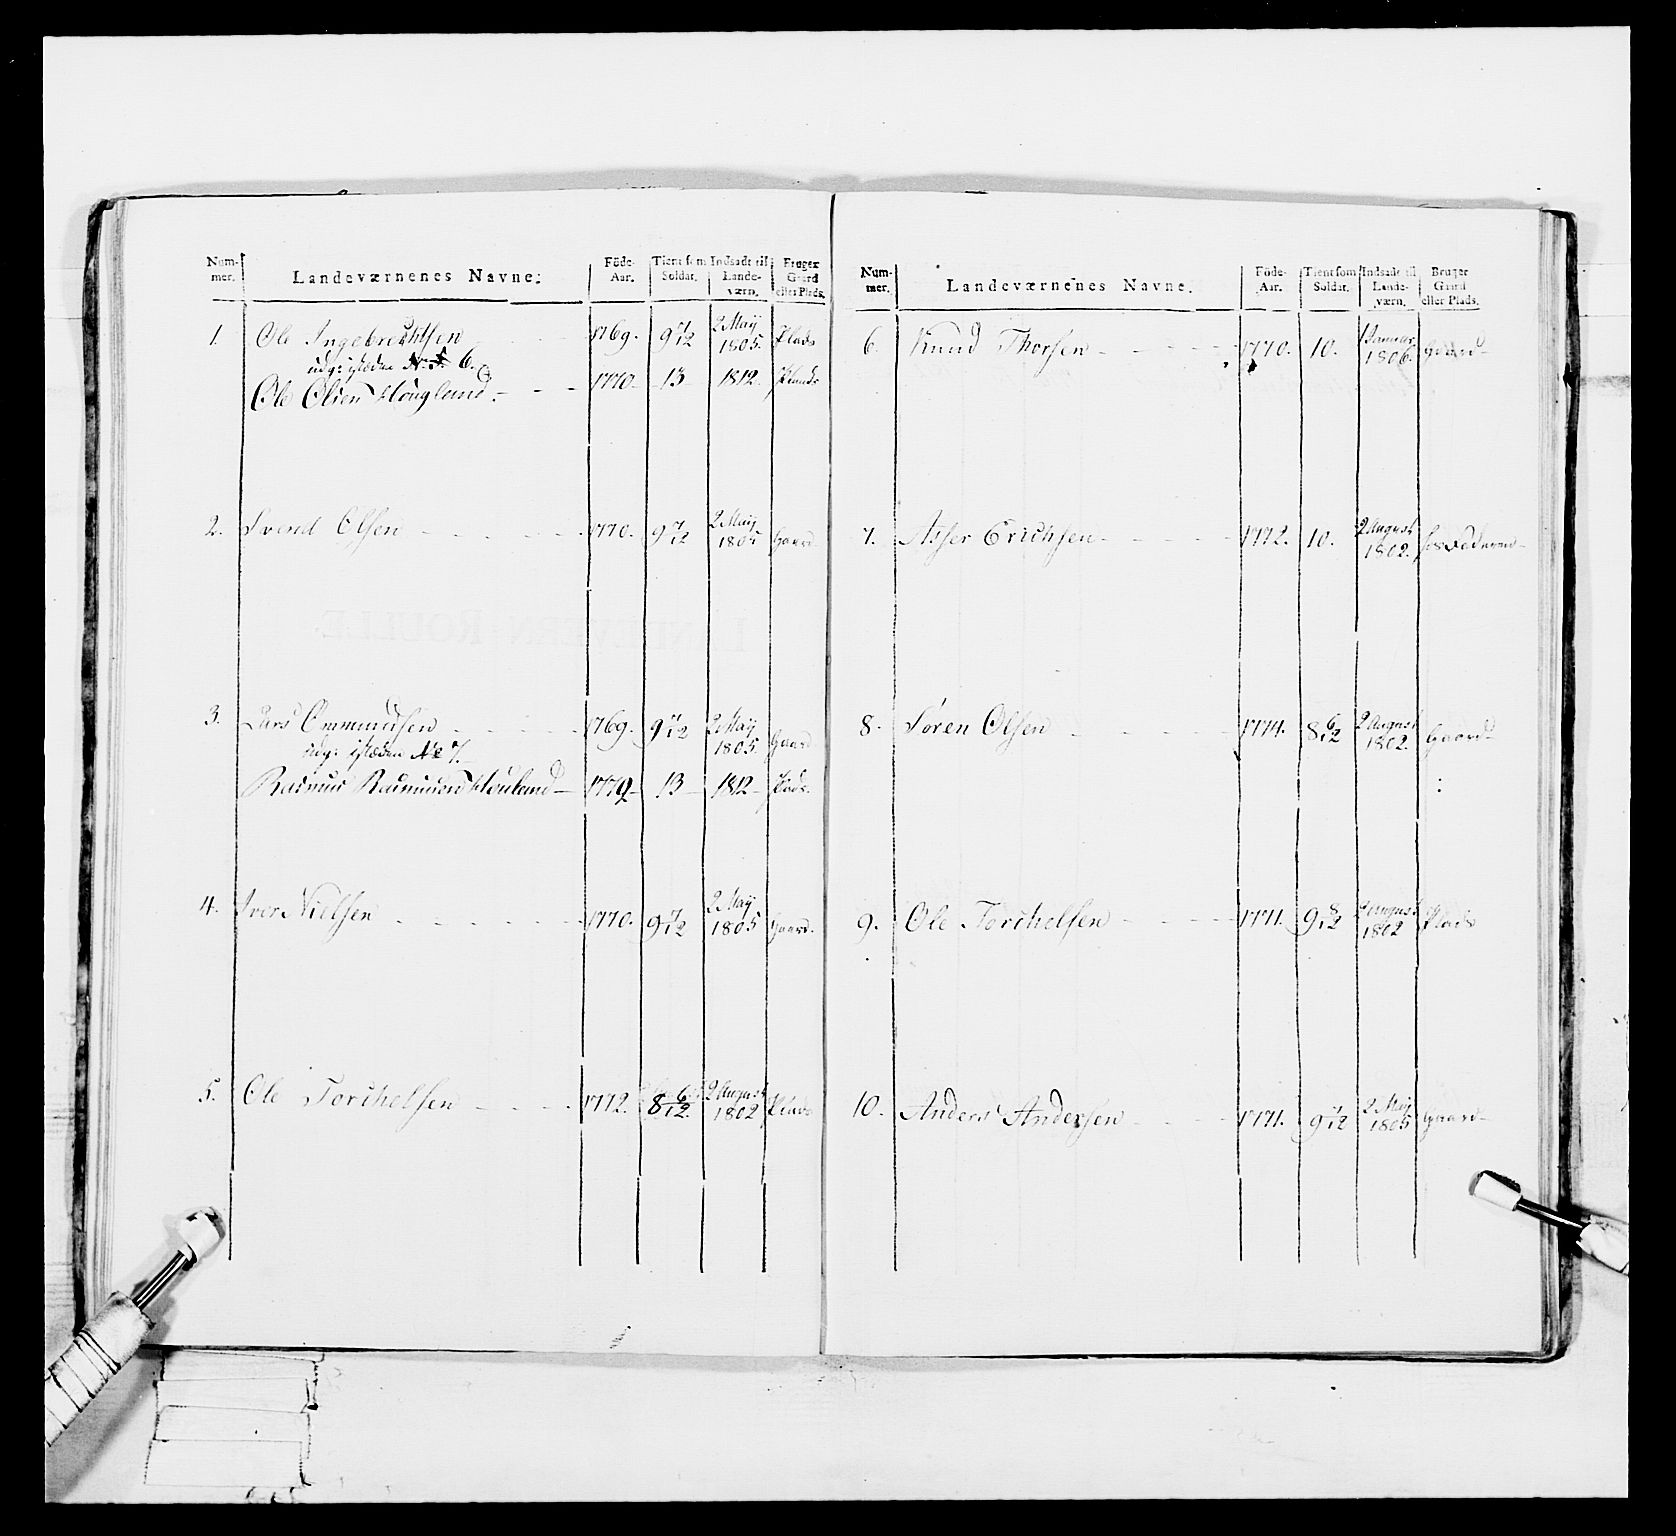 Num-mer. Landeværnenes Navne. Föde-Aar. Tient som Soldat. Indsadt til Lande-værn. Bruger Gaard eller Plads.
1. Ole Ingebrechtsen 1769. 9 7/12 2 May 1805. Plads
udg: isteden No 6.
Ole Olsen Hougland. 1770 13 1812 Plads
2. Svend Olsen 1770. 9 7/12 2 May 1805 Gaard
3. Lars Ommundsen 1769. 9 7/12 2 May 1805 Gaard
udg: isteden No 7.
Rasmus Rasmussen Houland 1779 13 1812 Plads.
4. Iver Nielsen 1770. 9 7/12 2 May 1805 Gaard.
5. Ole Torchelsen 1772. 8 6/12 2 August 1802 Plads
Num-mer. Landeværnenes Navne. Föde-Aar. Tient som Soldat. Indsadt til Lande-værn. Bruger Gaard eller Plads.
6. Knud Thorsen 1770. 10. 1 Januar 1806. Gaard
7. Asser Erichsen 1772. 10. 2 August 1802. hos Faderen
8. Søren Olsen 1774. 8 6/12 2 August 1802. Gaard
9. Ole Torchelsen 1771. 9 8/12 2 August 1802 Plads
10. Anders Andersen 1771. 9 7/12 2 May 1805 Gaard